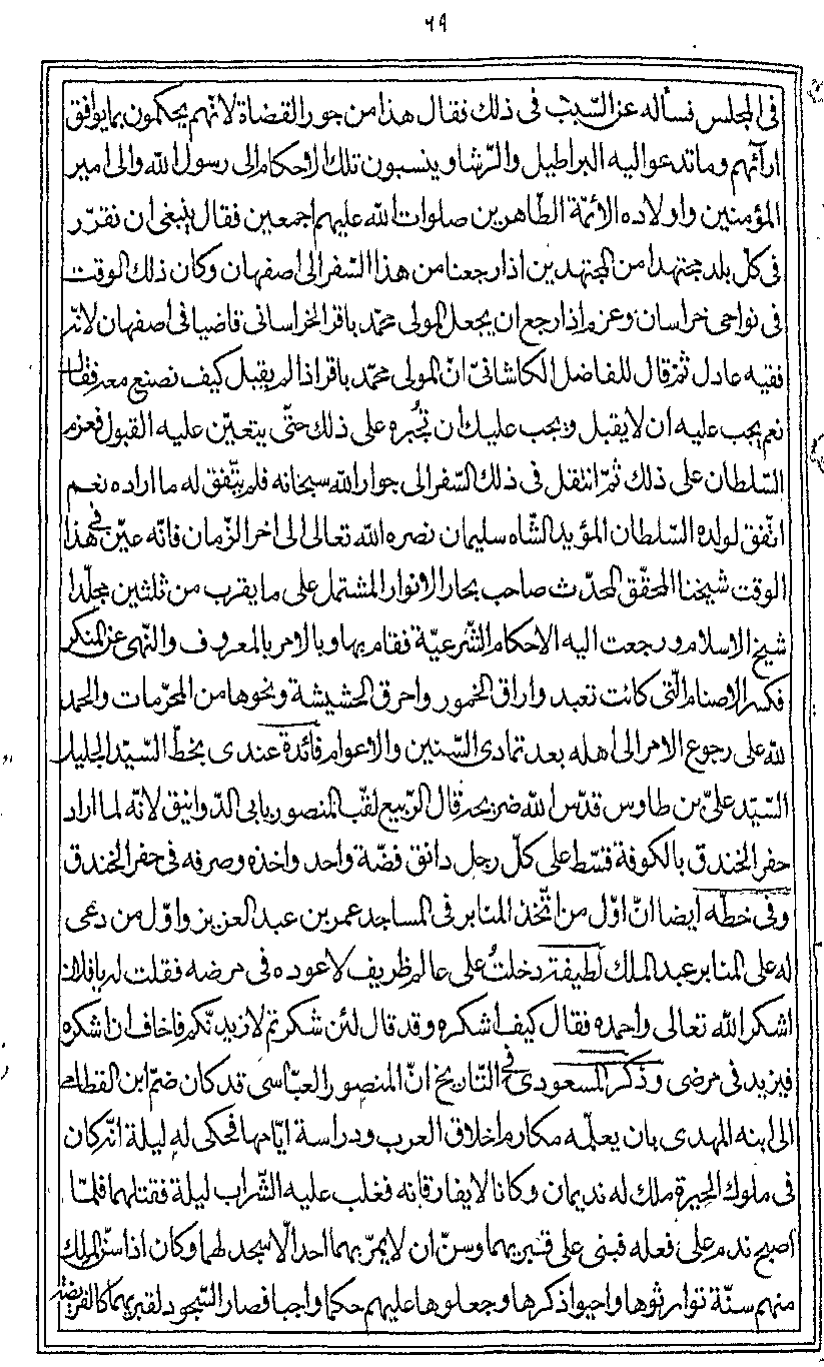 ٦٩
فى المجلس فسأله عن السّبب فى ذلك فقال هذا من جور القضاة لانّهم يحكمون بما يوافق
ارآئهم وما تدعو اليه البراطيل والرّشا وينسبون تلك الاحكام الى رسول الله والى امير
المؤمنين واولاده الأئمّة الطّاهرين صلوات الله عليهم اجمعين فقال ينبغى ان نقرّر
فى كلّ بلد مجتهدا من المجتهدين اذا رجعنا من هذا السّفر الى اصفهان وكان ذلك الوقت
فى نواحى خراسان وعزم اذا رجع ان يجعل المولى محمّد باقر الخراسانى قاضيا فى اصفهان لانّه
فقيه عادل ثمّ قال للفاضل الكاشانىّ انّ المولى محمّد باقر اذا لم يقبل كيف نصنع معه فقال
نعم يجب عليه ان لا يقبل ويجب عليك ان تجُبره على ذلك حتّى يتعيّن عليه القبول فعزم
السّلطان على ذلك ثمّ انتقل فى ذلك السّفر الى جوار الله سبحانه فلم يتّفق له ما اراده نعم
اتّفق لولده السّلطان المؤيد الشّاه سليمان نصره الله تعالى الى اخر الزّمان فانّه عيّن فى هذا
الوقت شيخنا المحقّق المحدّث صاحب بحار الانوار المشتمل على ما يقرب من ثلثين مجلّدا
شيخ الاسلام ورجعت اليه الاحكام الشّرعيّة فقام بها وبالامر بالمعروف والنّهى عن المنكر
فكسر الاصنام الّتى كانت تعبد واراق الخمور واحرق الحشيشة ونحوها من المحرّمات والحمد
لله على رجوع الامر الى اهله بعد تمادى السّنين والاعوام فائدة عندى بخطّ السّيّد الجليل
السّيّد علىّ بن طاوس قدّس الله ضريحه قال الرّبيع لقّب المنصور بابى الدّوانيق لانّه لما اراد
حفر الخندق بالكوفة قسّط على كلّ رجل دانق فضّة واحد واخذه وصرفه فى حفر الخندق
وفى خطّه ايضا انّ اوّل من اتّخذ المنابر فى المساجد عمر بن عبد العزيز واوّل من دعى
له على المنابر عبد الملك لطيفة دخلتُ على عالم ظريف لاعوده فى مرضه فقلت له يا فلان
اشكر الله تعالى واحمده فقال كيف اشكره وقد قال لئن شكرتم لازيدنّكم فاخاف ان اشكره
فيزيد فى مرضى وذكر المسعودى فى التّاريخ انّ المنصور العبّاسى قد كان ضمّ ابن القطامى
الى ابنه المهدى بان يعلّمه مكارم اخلاق العرب ودراسة ايّامها فحكى له ليلة انّه كان
فى ملوك الحيرة ملك له نديمان وكانا لا يفارقانه فغلب عليه الشّراب ليلة فقتلهما فلمّا
اصبح ندم على فعله فبنى على قبريهما وسنّ ان لا يمرّ بهما احد الّا سجد لهما وكان اذا سنّ الملك
منهم سنّة توارثوها واحيوا ذكرها وجعلوها عليهم حكما واجبا فصار السّجود لقبريهما كالفريضة